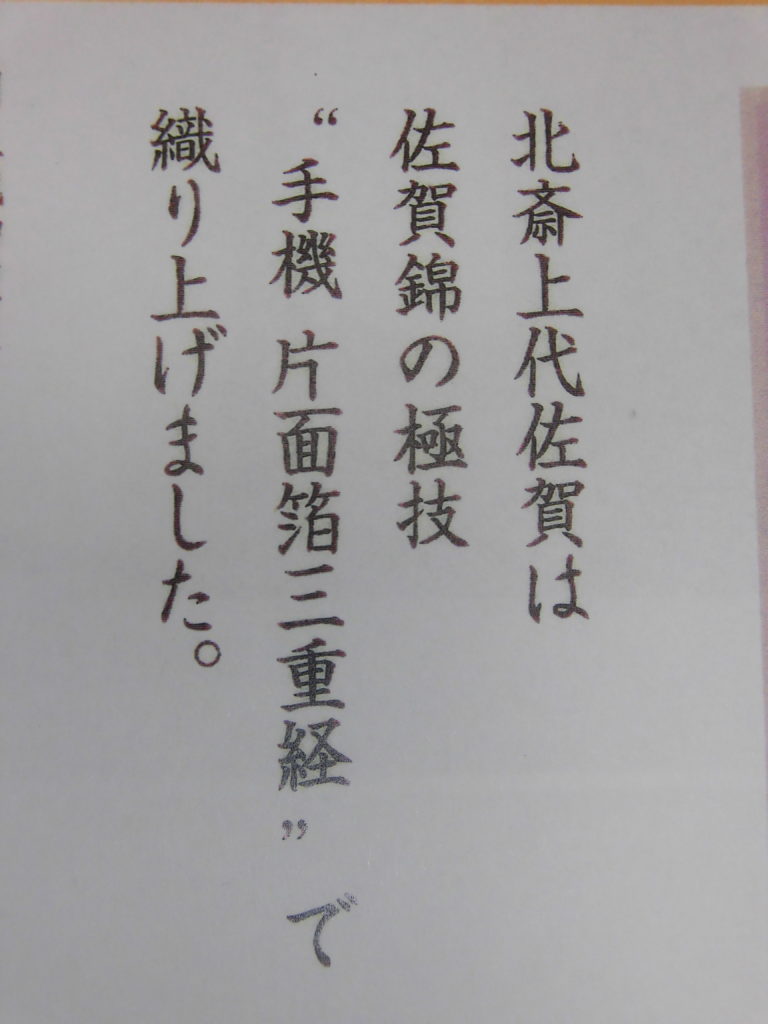 北斎上代佐賀は
佐賀錦の極技
“手機 片面箔三重経”で
織り上げました。